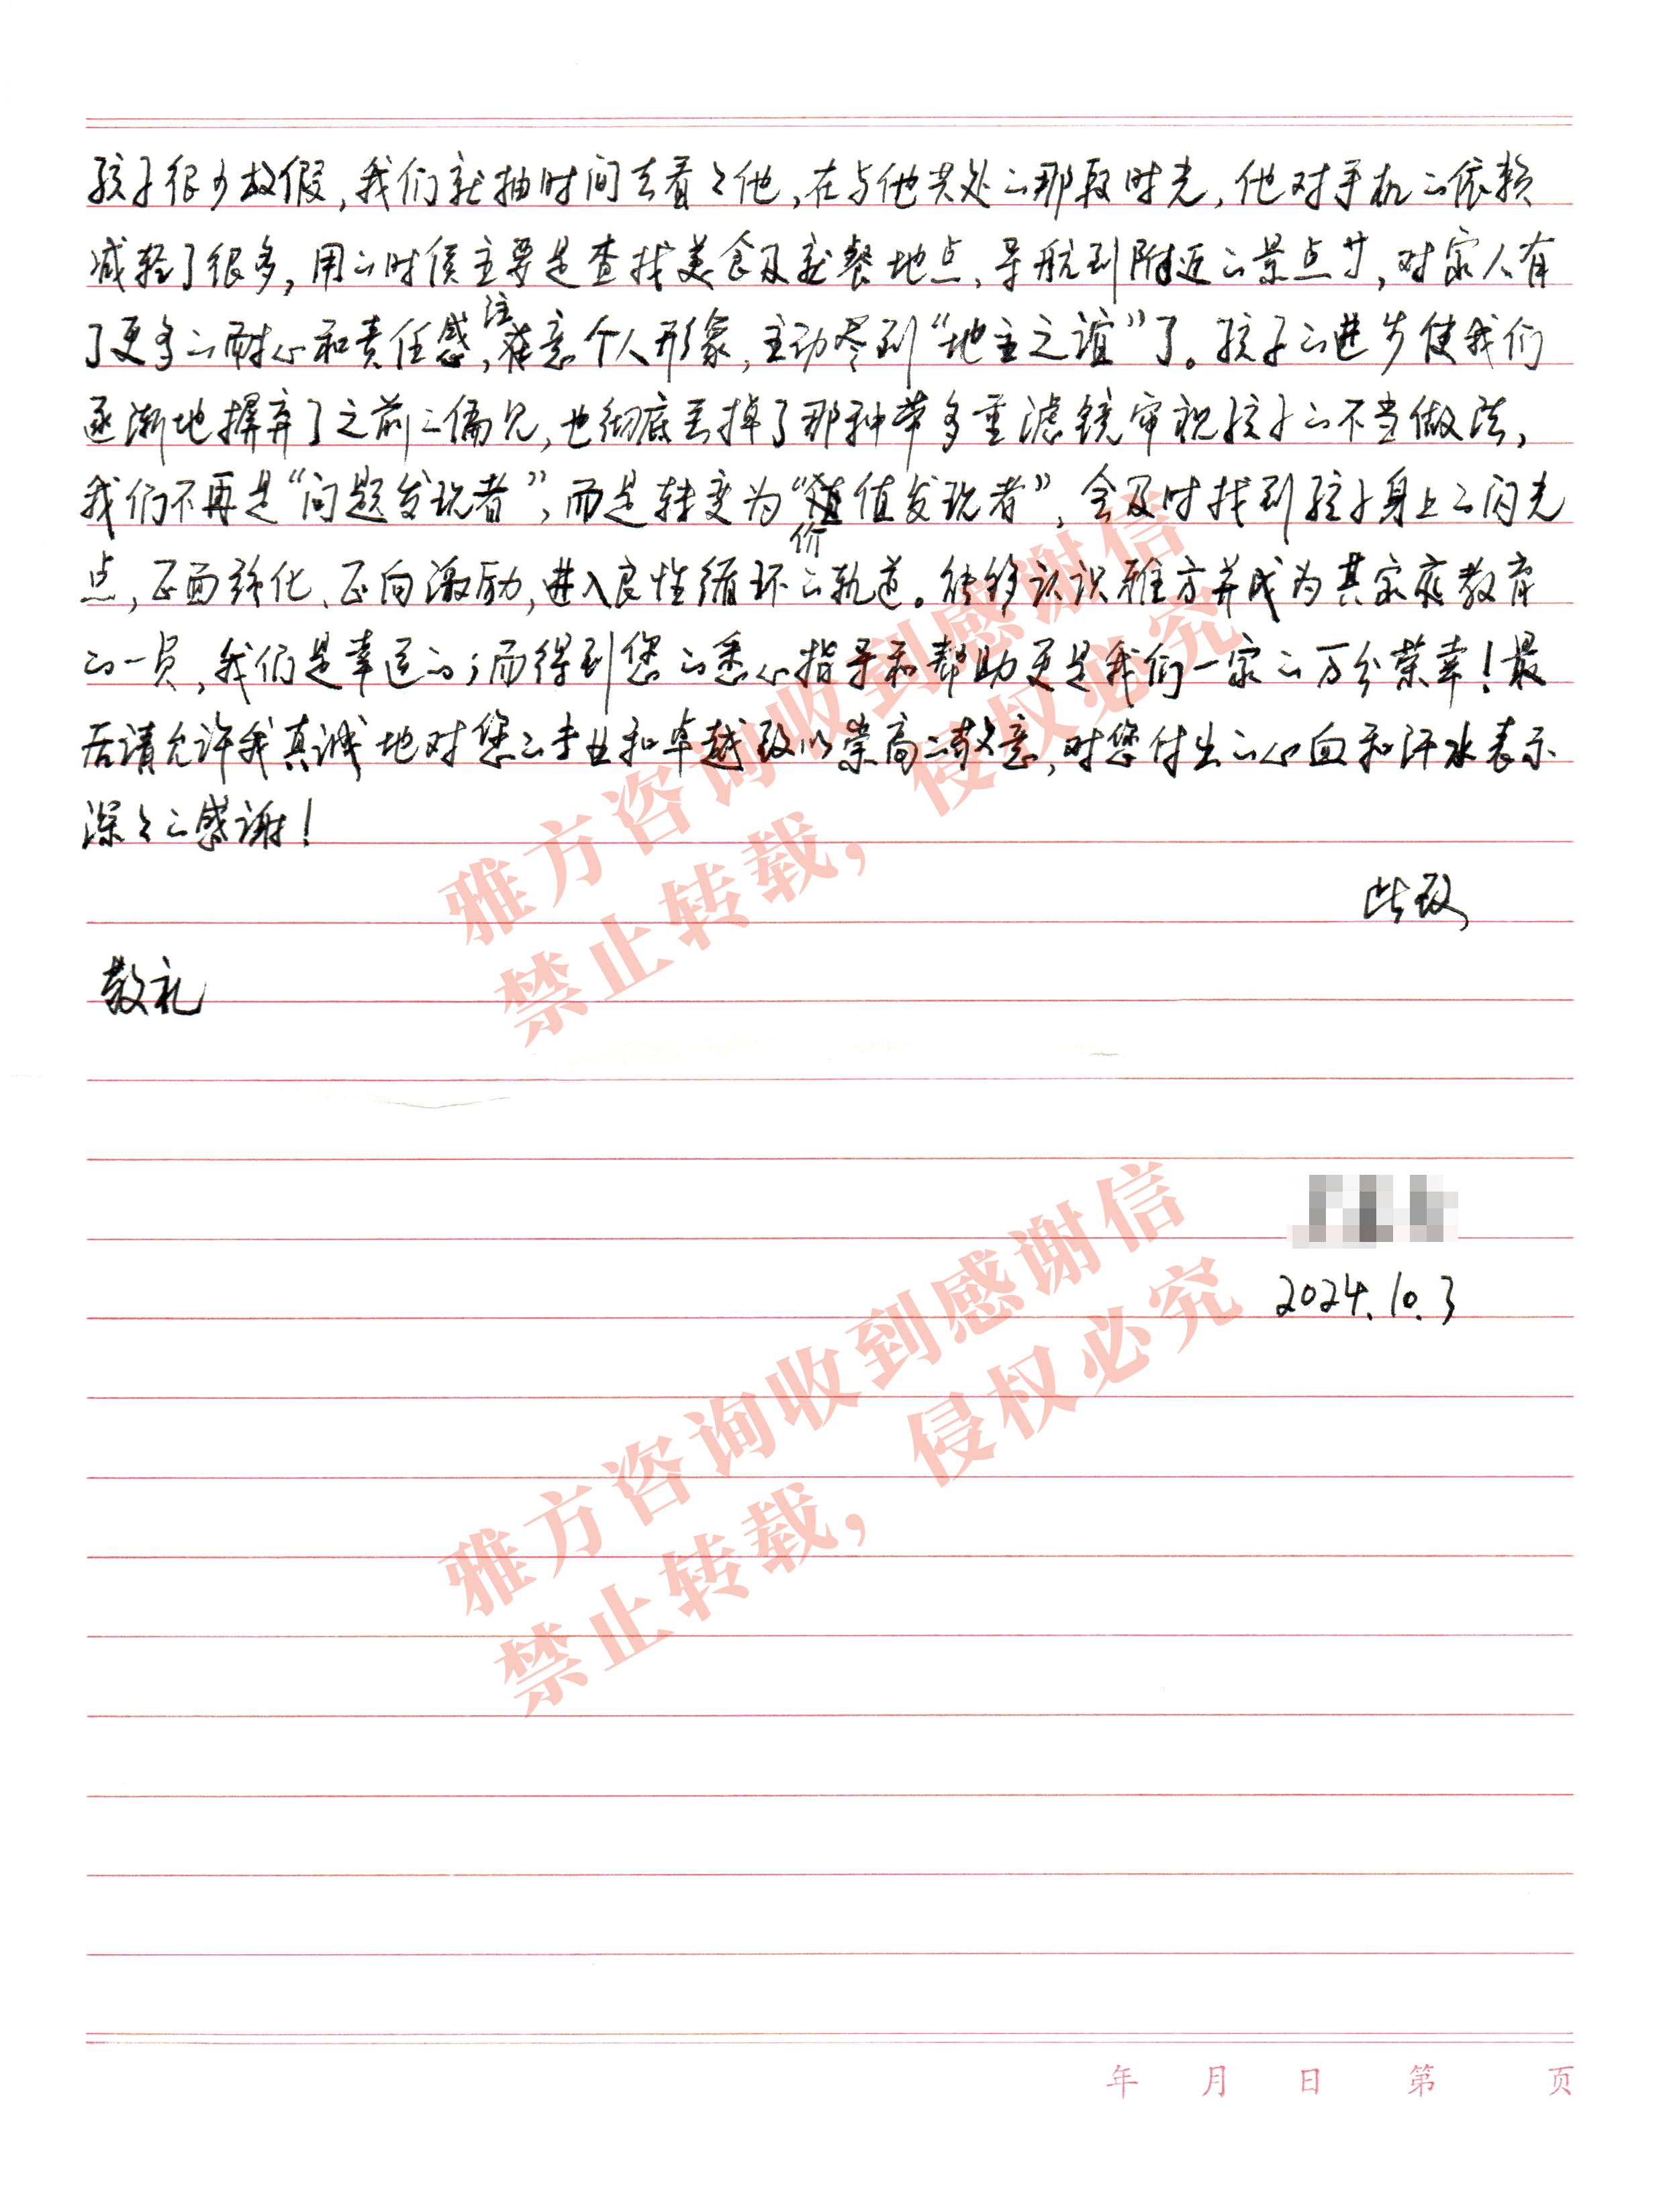 孩子很少放假，我们就抽时间去看看他，在与他共处的那段时光，他对手机的依赖
减轻了很多，用的时候主要是查找美食及就餐地点、导航到附近的景点等，对家人有
了更多的耐心和责任感，注意个人形象，主动尽到“地主之谊”了。孩子的进步使我们
逐渐地摒弃了之前的偏见，也彻底丢掉了那种带多重滤镜审视孩子的不当做法，
我们不再是“问题发现者”，而是转变为“价值发现者”，会及时找到孩子身上的闪光
点，正面强化、正向激励，进入良性循环的轨道。能够认识雅方并成为其家庭教育
的一员，我们是幸运的；而得到您的悉心指导和帮助更是我们一家的万分荣幸！最
后请允许我真诚地对您的专业和卓越致以崇高的敬意，对您付出的心血和汗水表示
深深的感谢！
此致
敬礼
2024.10.3
雅方咨询收到感谢信
禁止转载，侵权必究
雅方咨询收到感谢信
禁止转载，侵权必究
年 月 日 第 页